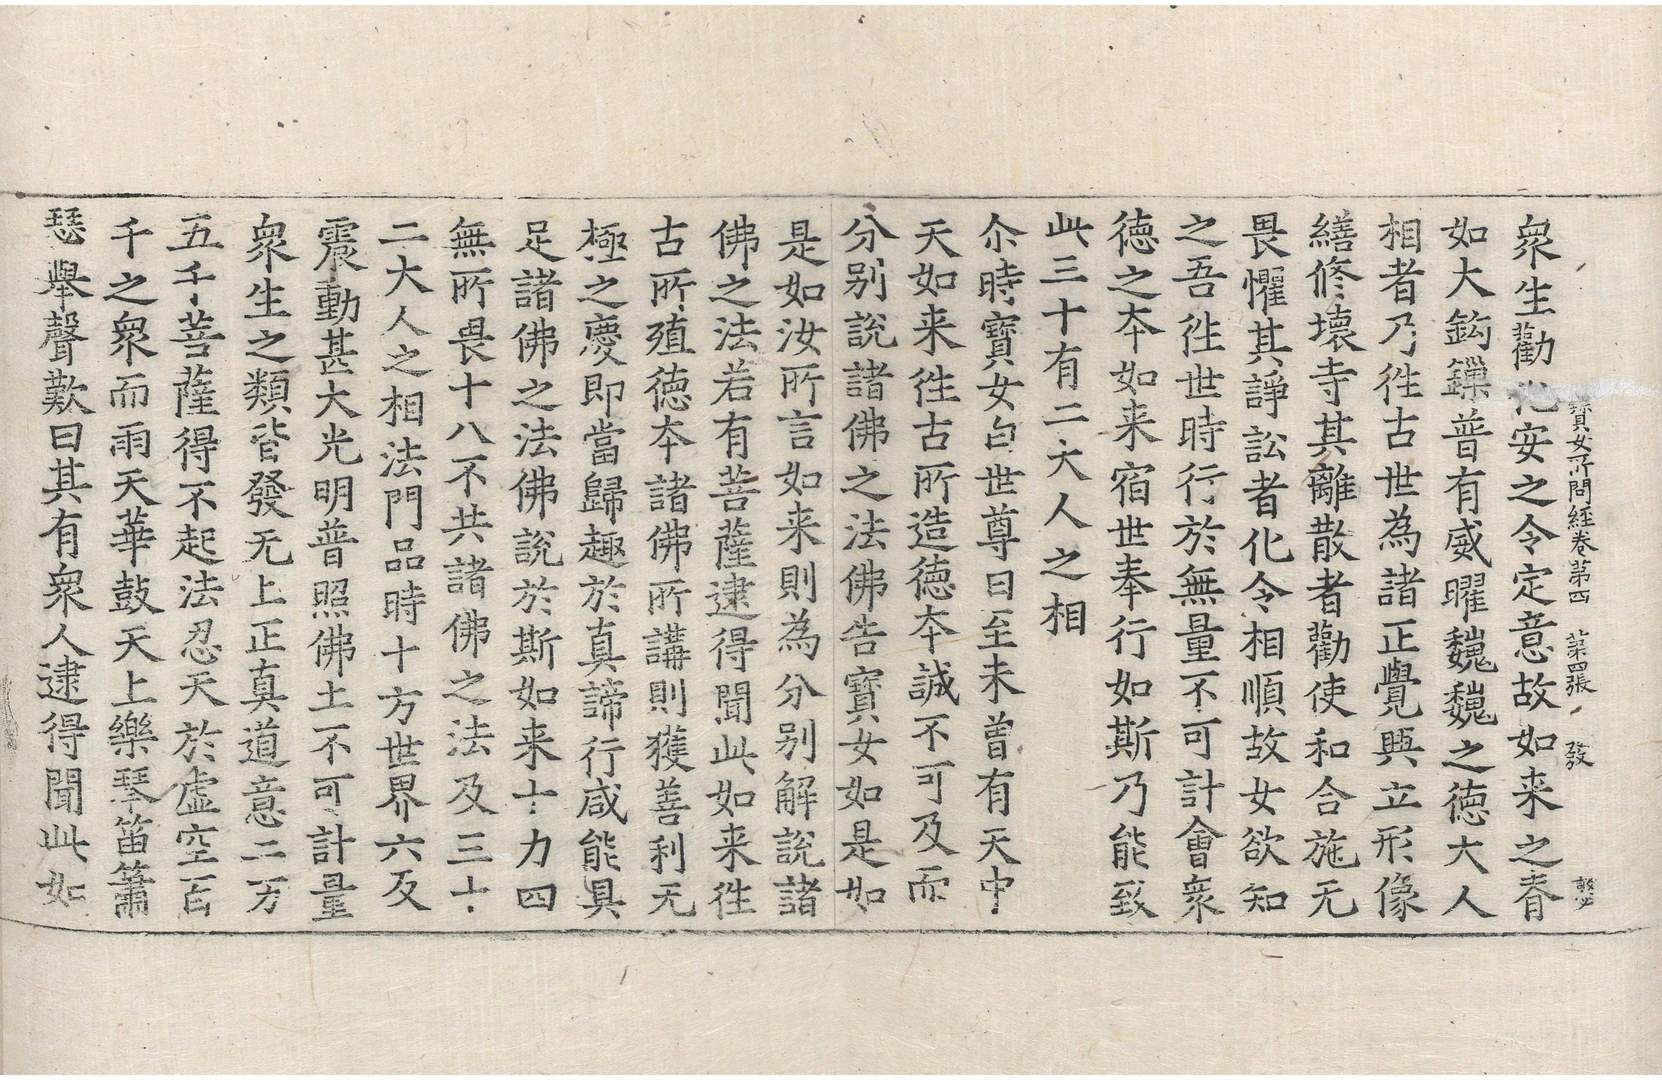 寶女所問經卷第四 第四張 發
衆生勸化安之令定意故如来之眷
如大鈎鏁普有威曜巍巍之德大人
相者乃徃古世為諸正覺興立形像
繕修壞寺其離散者勸使和合施无
畏懼其諍訟者化令相順故女欲知
之吾徃世時行於無量不可計會衆
德之夲如来宿世奉行如斯乃能致
此三十有二大人之相
尒時寶女白世尊曰至未曽有天中
天如来徃古所造德夲誠不可及而
分别說諸佛之法佛告寶女如是如
是如汝所言如来則為分别解說諸
佛之法若有菩薩逮得聞此如来徃
古所殖德夲諸佛所講則獲善利无
極之慶即當歸趣於真諦行咸能具
足諸佛之法佛說於斯如来十力四
無所畏十八不共諸佛之法及三十
二大人之相法門品時十方世界六反
震動甚大光明普照佛土不可計量
衆生之類皆發无上正真道意二万
五千菩薩得不起法忍天於虛空百
千之衆而雨天華鼓天上樂琴笛簫
瑟舉聲歎曰其有衆人逮得聞此如